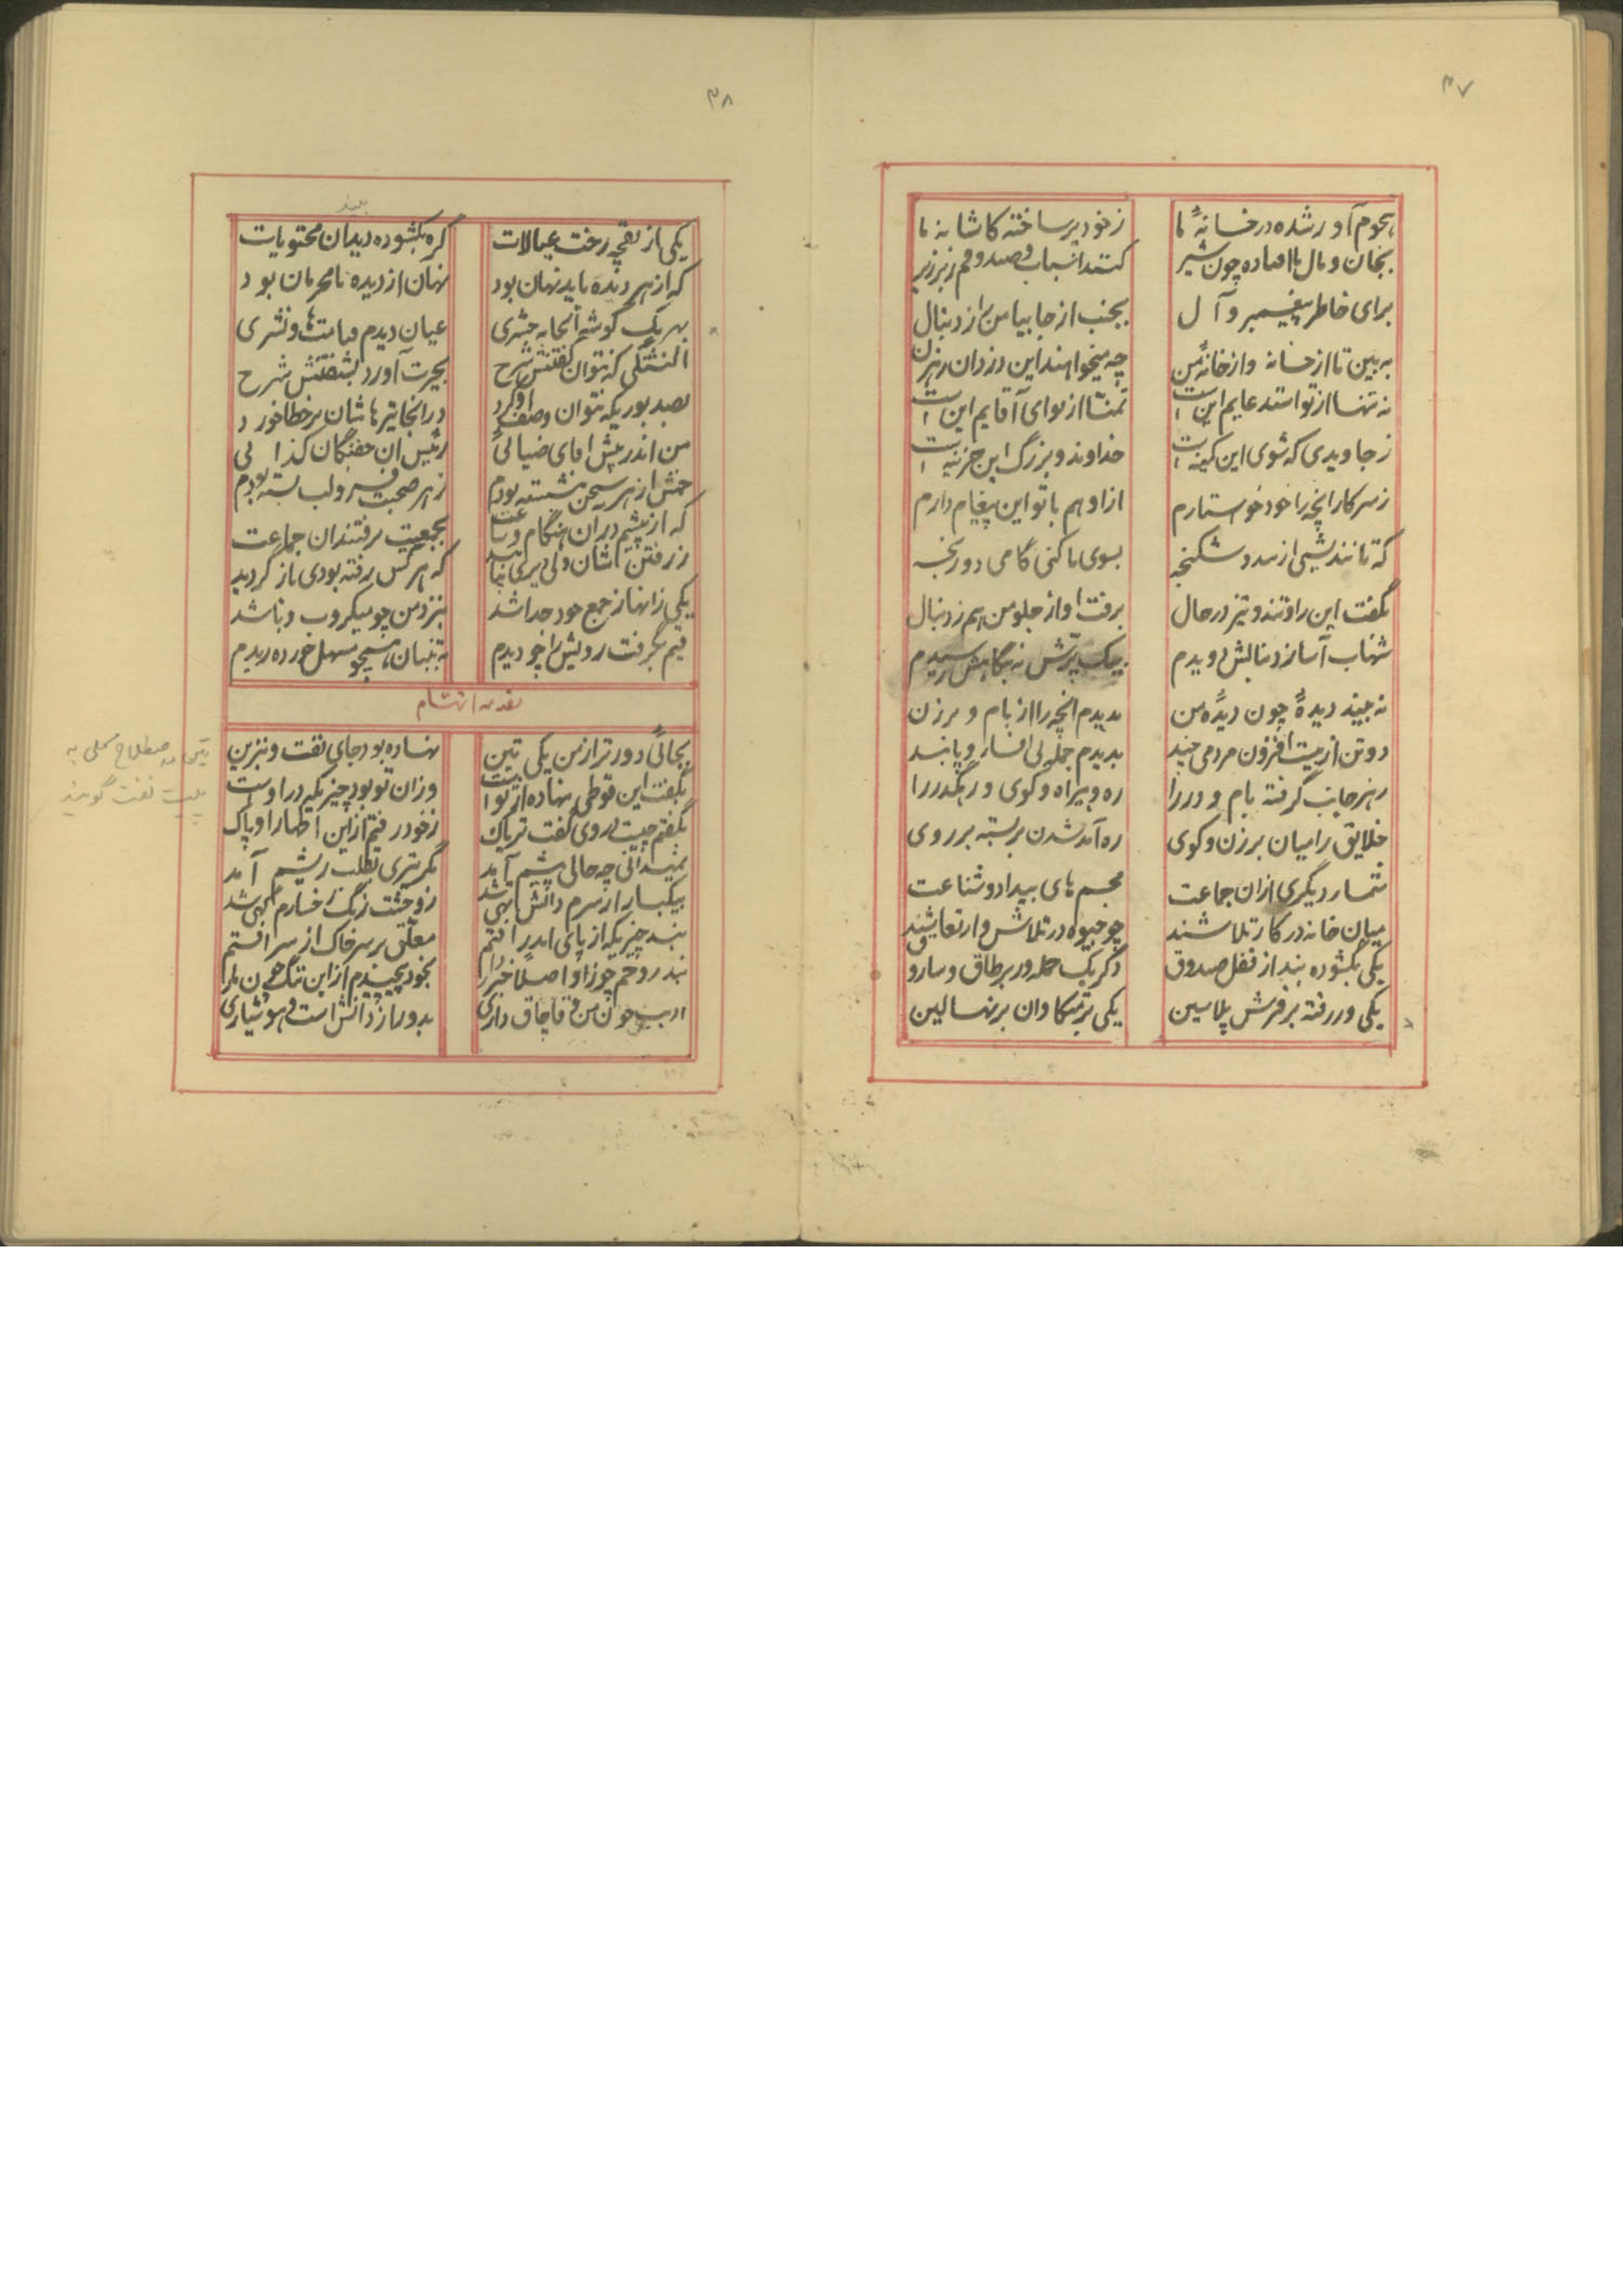 ۳۷
هجوم آور شده در خانهٔ ما
ز خود پر ساخته کاشانه ما
بجان و مال ما افتاده چون شیر
کنند اسباب و صندوقم زبر زیر
برای خاطر پیغمبر و آل
بجنب از جا بیا من را ز دنبال
به بین تا از خانه و از خانهٔ من
چه میخواهند این دزدان رهزن
نه تنها از تو استدعایم این است
تمنّا از نوای آقایم این است
ز جاویدی که شوی این کمینه است
خداوند و بزرگ این حزینه است
ز سرکار آنچه را خود خواستارم
از او هم با تو این پیغام دارم
که تا نندیشی از بند و شکنجه
بسوی ما کنی گامی دو رنجه
بگفت این را و تند و تیز در حال
برفت او از جلو من هم ز دنبال
شهاب آسا ز دنبالش دویدم
بیک پرّش به بنگاهش رسیدم
نه بیند دیدهٔ چون دیدهٔ من
بدیدم آنچه را از بام و برزن
دو تن از بیست افزون مردمی چند
بدیدم جمله بی افسار و پابند
بهر جانب گرفته بام و در را
ره و بیراه و کوی و رهگذر را
خلایق را میان برزن و کوی
ره آمد شدن بر بسته بر روی
شمار دیگری از ان جماعت
مجسم های بیداد و شناعت
میان خانه در کار تلاشند
چو جیوه در تلاش و ارتعاشند
یکی بگشوده بند از قفل صندوق
دگر یک حمله ور بر طاق و سارو
یکی ور رفته بر فرش پلاسین
یکی بر متکا وان بر نهالین
۳۸
یکی باز بقچه رخت عیالات
گره بگشوده دید ان محتویات
که از هر دیده باید نهان بود
نهان از دیده نامحرمان بود
بهر یک گوشه آنخانه حشری
عیان دیدم قیامتها و نشری
النشنگی که نتوان گفتنش شرح
بحیرت آورد بشنفتنش شرح
بصد بوریکه نتوان وصف او کرد
در انجا تیرهاشان بر خطا خورد
من اندر پیش اقای ضیائی
رئیس ان خفتگان کذائی
خمش از هر سخن بنشسته بودم
ز هر صحبت لب بسته بودم
که از پیشم در ان هنگام و ساعت
بجمعیت برفتند ان جماعت
ز رفتن اشان ولی دیری نپائید
که هر کس رفته بودی باز گردید
یکی زانها ز جمع خود جدا شد
بنزد من چو میکروب وبا شد
قیم بگرفت رویش را چو دیدم
به تنبان همچو مسهل خورده ریدم
بجائی دورتر از من یکی تین
نهاده بود جای نفت و بنزین
بگفت این قوطی بنهاده از تو است
وزان تو بود چیزیکه در اوست
بگفتم چیست در وی گفت تریاک
ز خود رفتم از این اظهار او پاک
نمیدانی چه حالی پیشم آمد
مگر تیزی بظلت ریشم آمد
بیکبار از سرم دانش تهی شد
ز وحشت رنگ رخسارم بهی شد
نبد چیزیکه از پای اندر افتم
معلّق بر سر خاک از سر افتم
نبد روحم چو زاو اصلاً خبردار
بخود پیچیدم از این ننگ چون مار
قاچاق داری
بدور از دانش است و هوشیاری
تین به اصطلاح محلی به
پیت نفت گویند